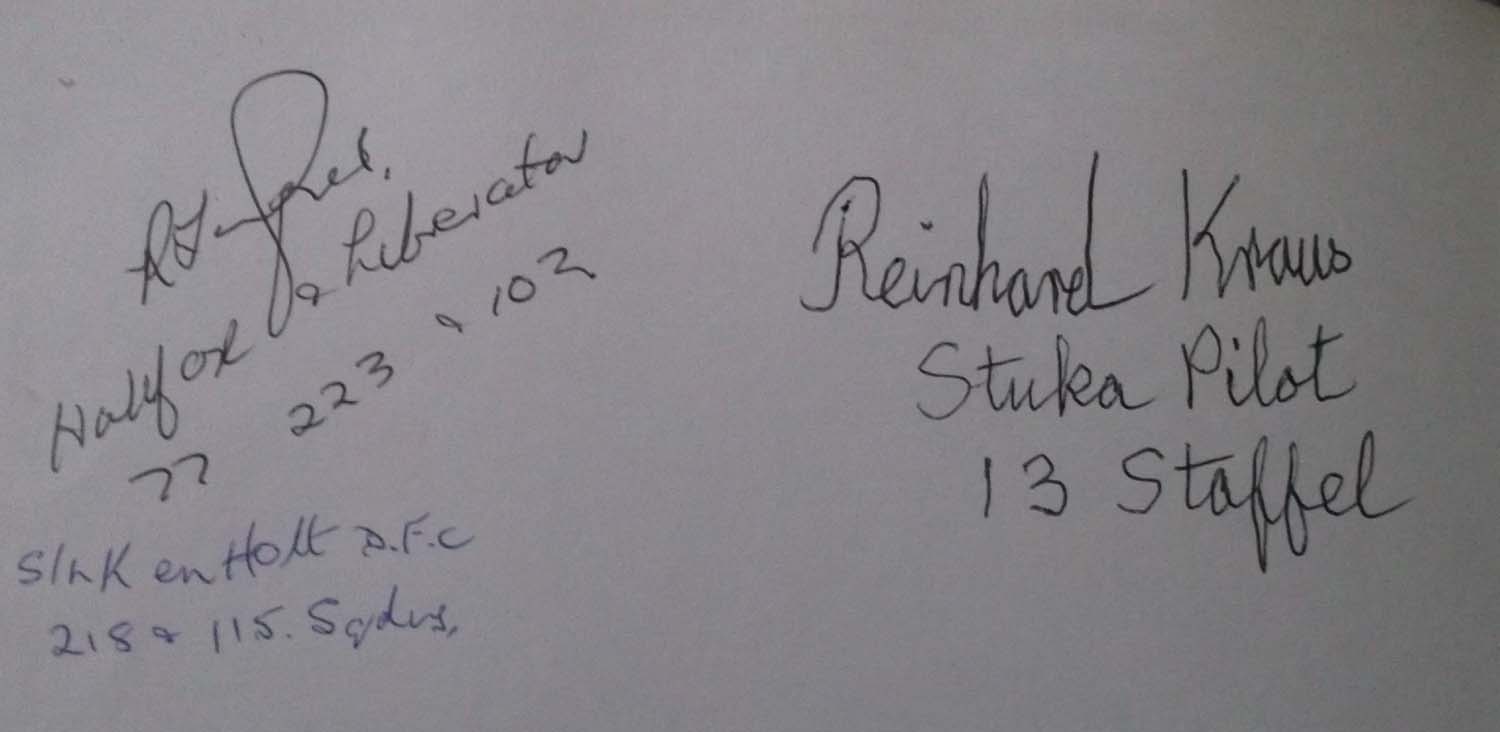 Halifax & Liberator
77 223 & 102
S/Ldr Ken Holt D.F.C
218 & 115. Sqdns,
Reinhard Kraus
Stuka Pilot
13 Staffel